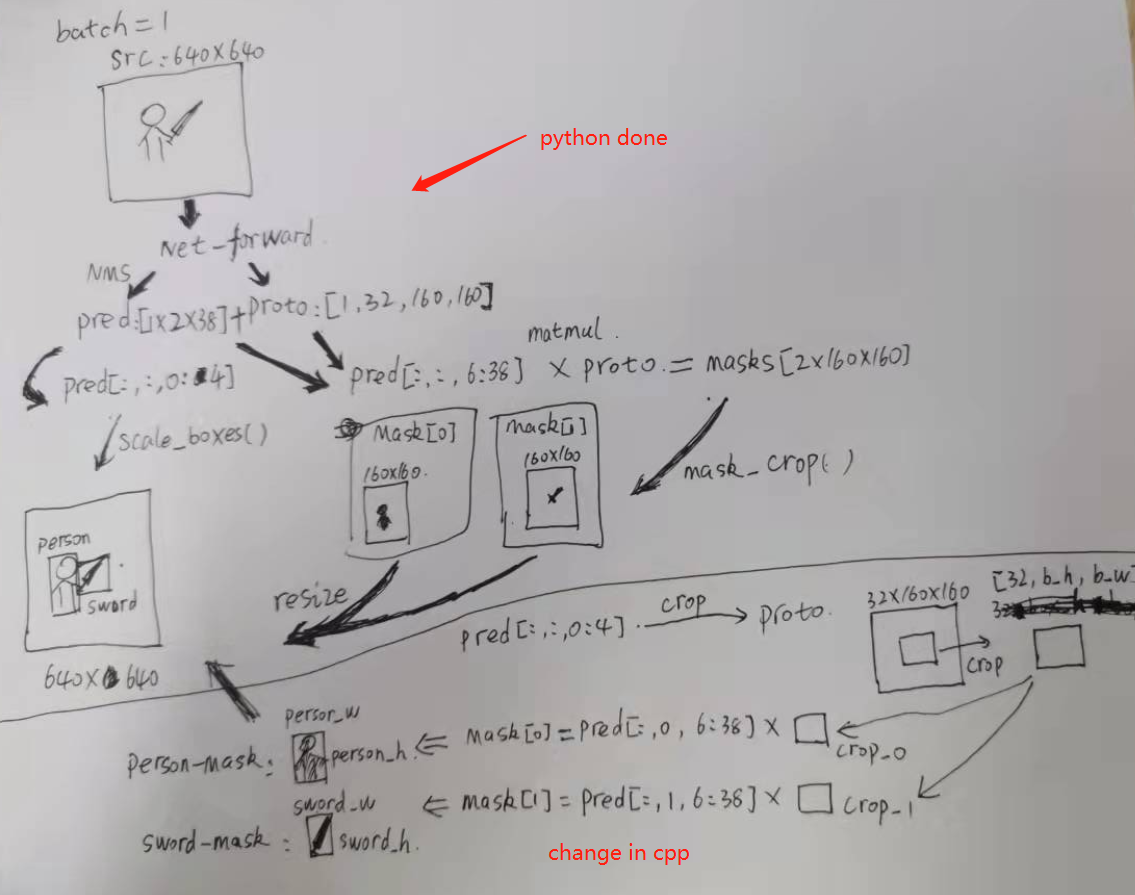 batch=1
src:640X640
python done
Net-forward
NMS
pred:[1X2X38]+proto:[1,32,160,160]
matmul.
pred[:,:,0:4]
pred[:,:,6:38] X proto.=masks[2x160x160]
scale_boxes()
Mask[0]
mask[1]
160x160.
160x160
mask_crop()
person
sword
640X640
resize
pred[:,:,0:4]
crop
proto.
32X160X160
[32,b_h,b_w]
crop
person_w
person-mask:
person_h.
⇐ mask[0]=pred[:,0,6:38] X
crop_0
sword_w
⇐ mask[1]=pred[:,1,6:38] X
crop_1
sword-mask:
sword_h.
change in cpp